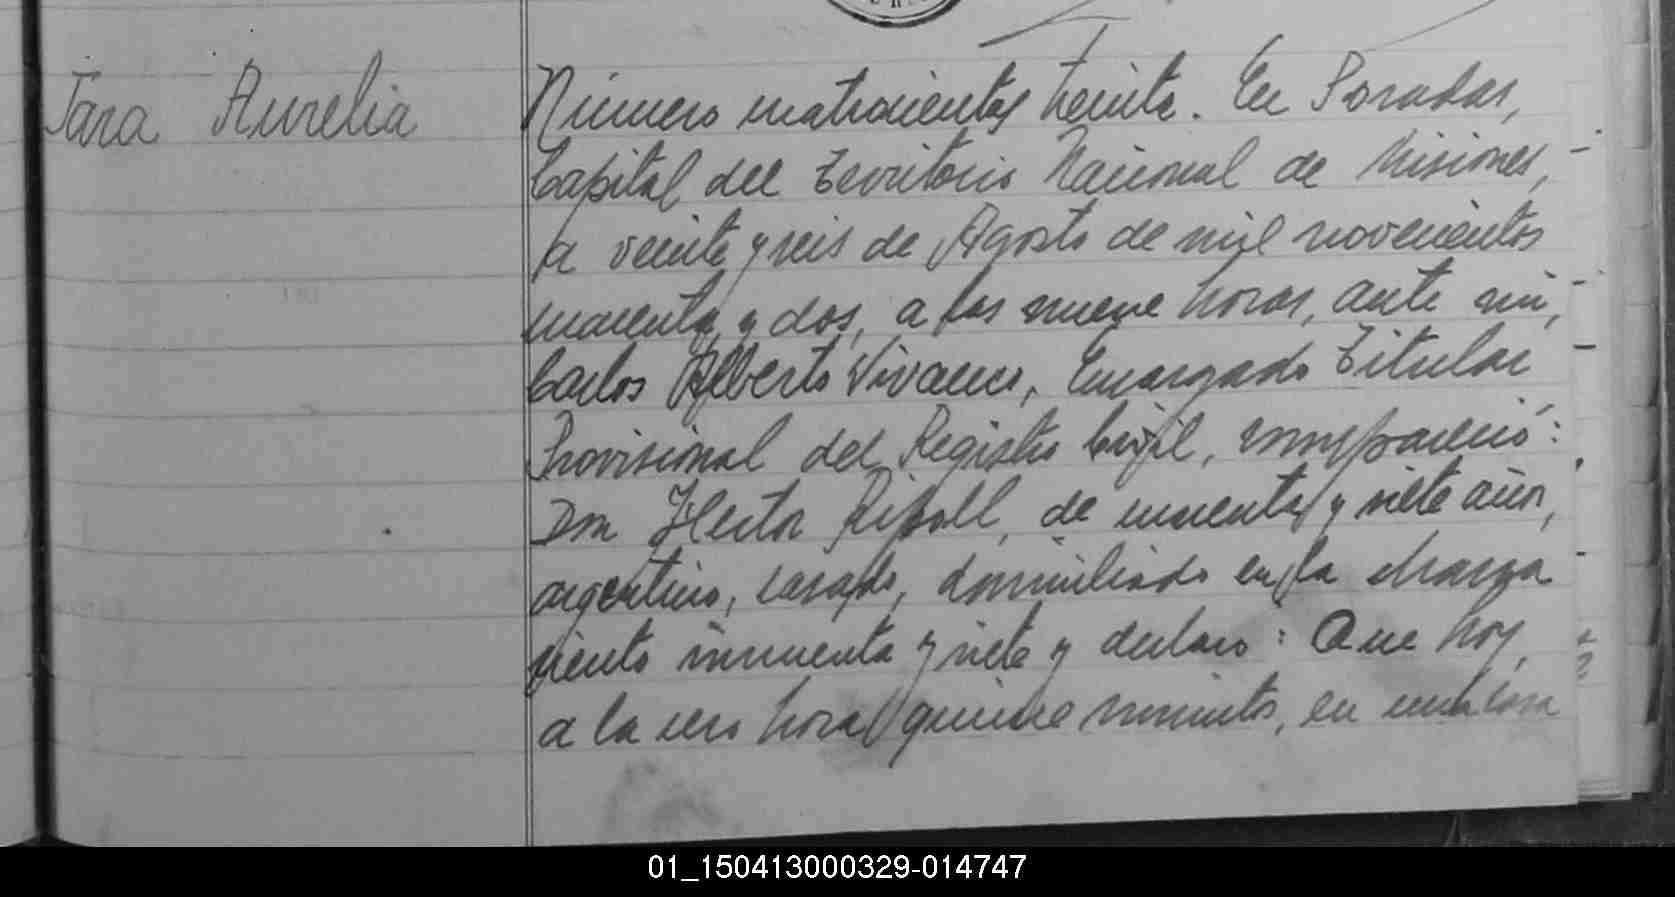 Jara Aurelia
Número cuatrocientos treinta. En Posadas,
Capital del Territorio Nacional de Misiones,
a veinte y seis de Agosto de mil novecientos
cuarenta y dos, a las nueve horas, ante mi,
Carlos Alberto Vivanco, Encargado Titular
Provisional del Registro Civil, compareció:
Don Hector Ripoll, de cuarenta y siete años,
argentino, casado, domiciliado en la chacra
ciento cincuenta y siete y declaro: Que hoy,
a la cero hora quince minutos, en una casa
01_150413000329-014747